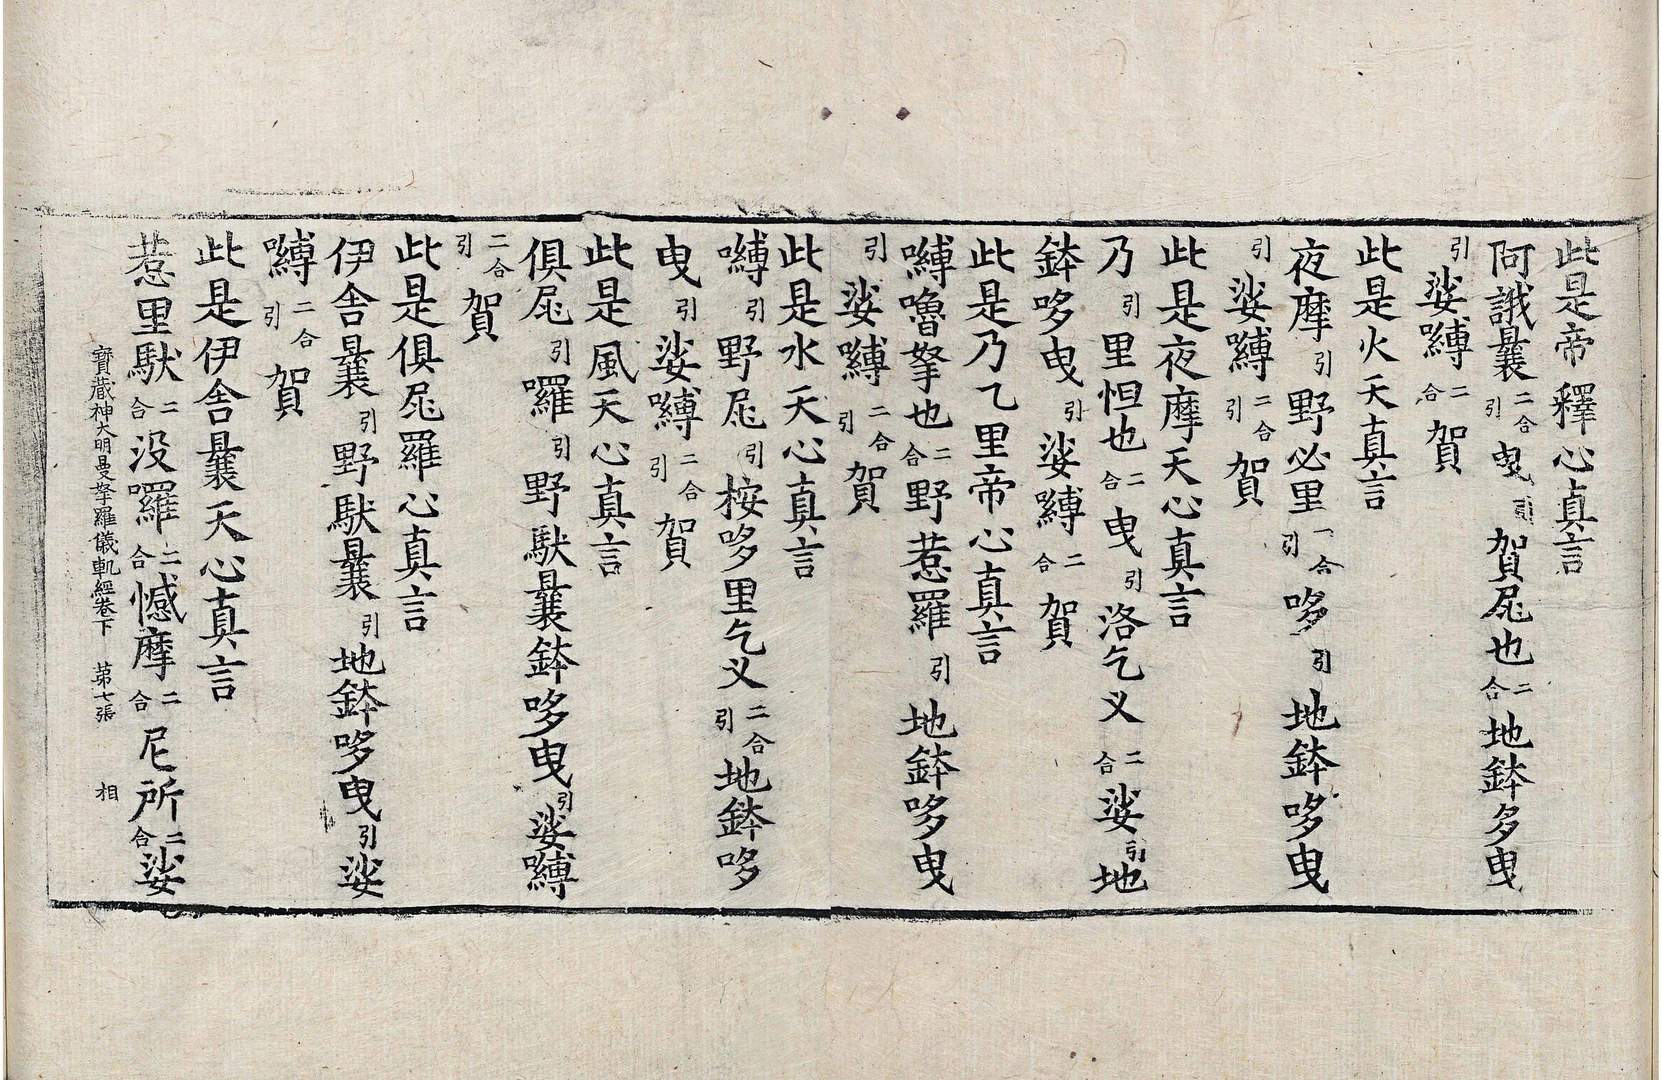 此是帝釋心真言
阿誐曩二合引曳引賀屁也二合地鉢多曳
引娑嚩二合賀
此是火天真言
夜摩引野必里二合引哆引地鉢哆曳
引娑嚩二合引賀
此是夜摩天心真言
乃引里怛也二合曳引洛乞义二合娑引地
鉢哆曳引娑嚩二合賀
此是乃乙里帝心真言
嚩嚕拏也二合野惹羅引地鉢哆曳
引娑嚩二合引賀
此是水天心真言
嚩引野屁引桉哆里乞义二合引地鉢哆
曳引娑嚩二合引賀
此是風天心真言
俱屁引囉引野馱曩鉢哆曳引娑嚩
二合引賀
此是俱屁羅心真言
伊舍曩引野馱曩引地鉢哆曳引娑
嚩二合引賀
此是伊舍曩天心真言
惹里馱二合没囉二合憾摩二合尼所二合娑
寶藏神大明曼拏羅儀軌經卷下 第七張 相